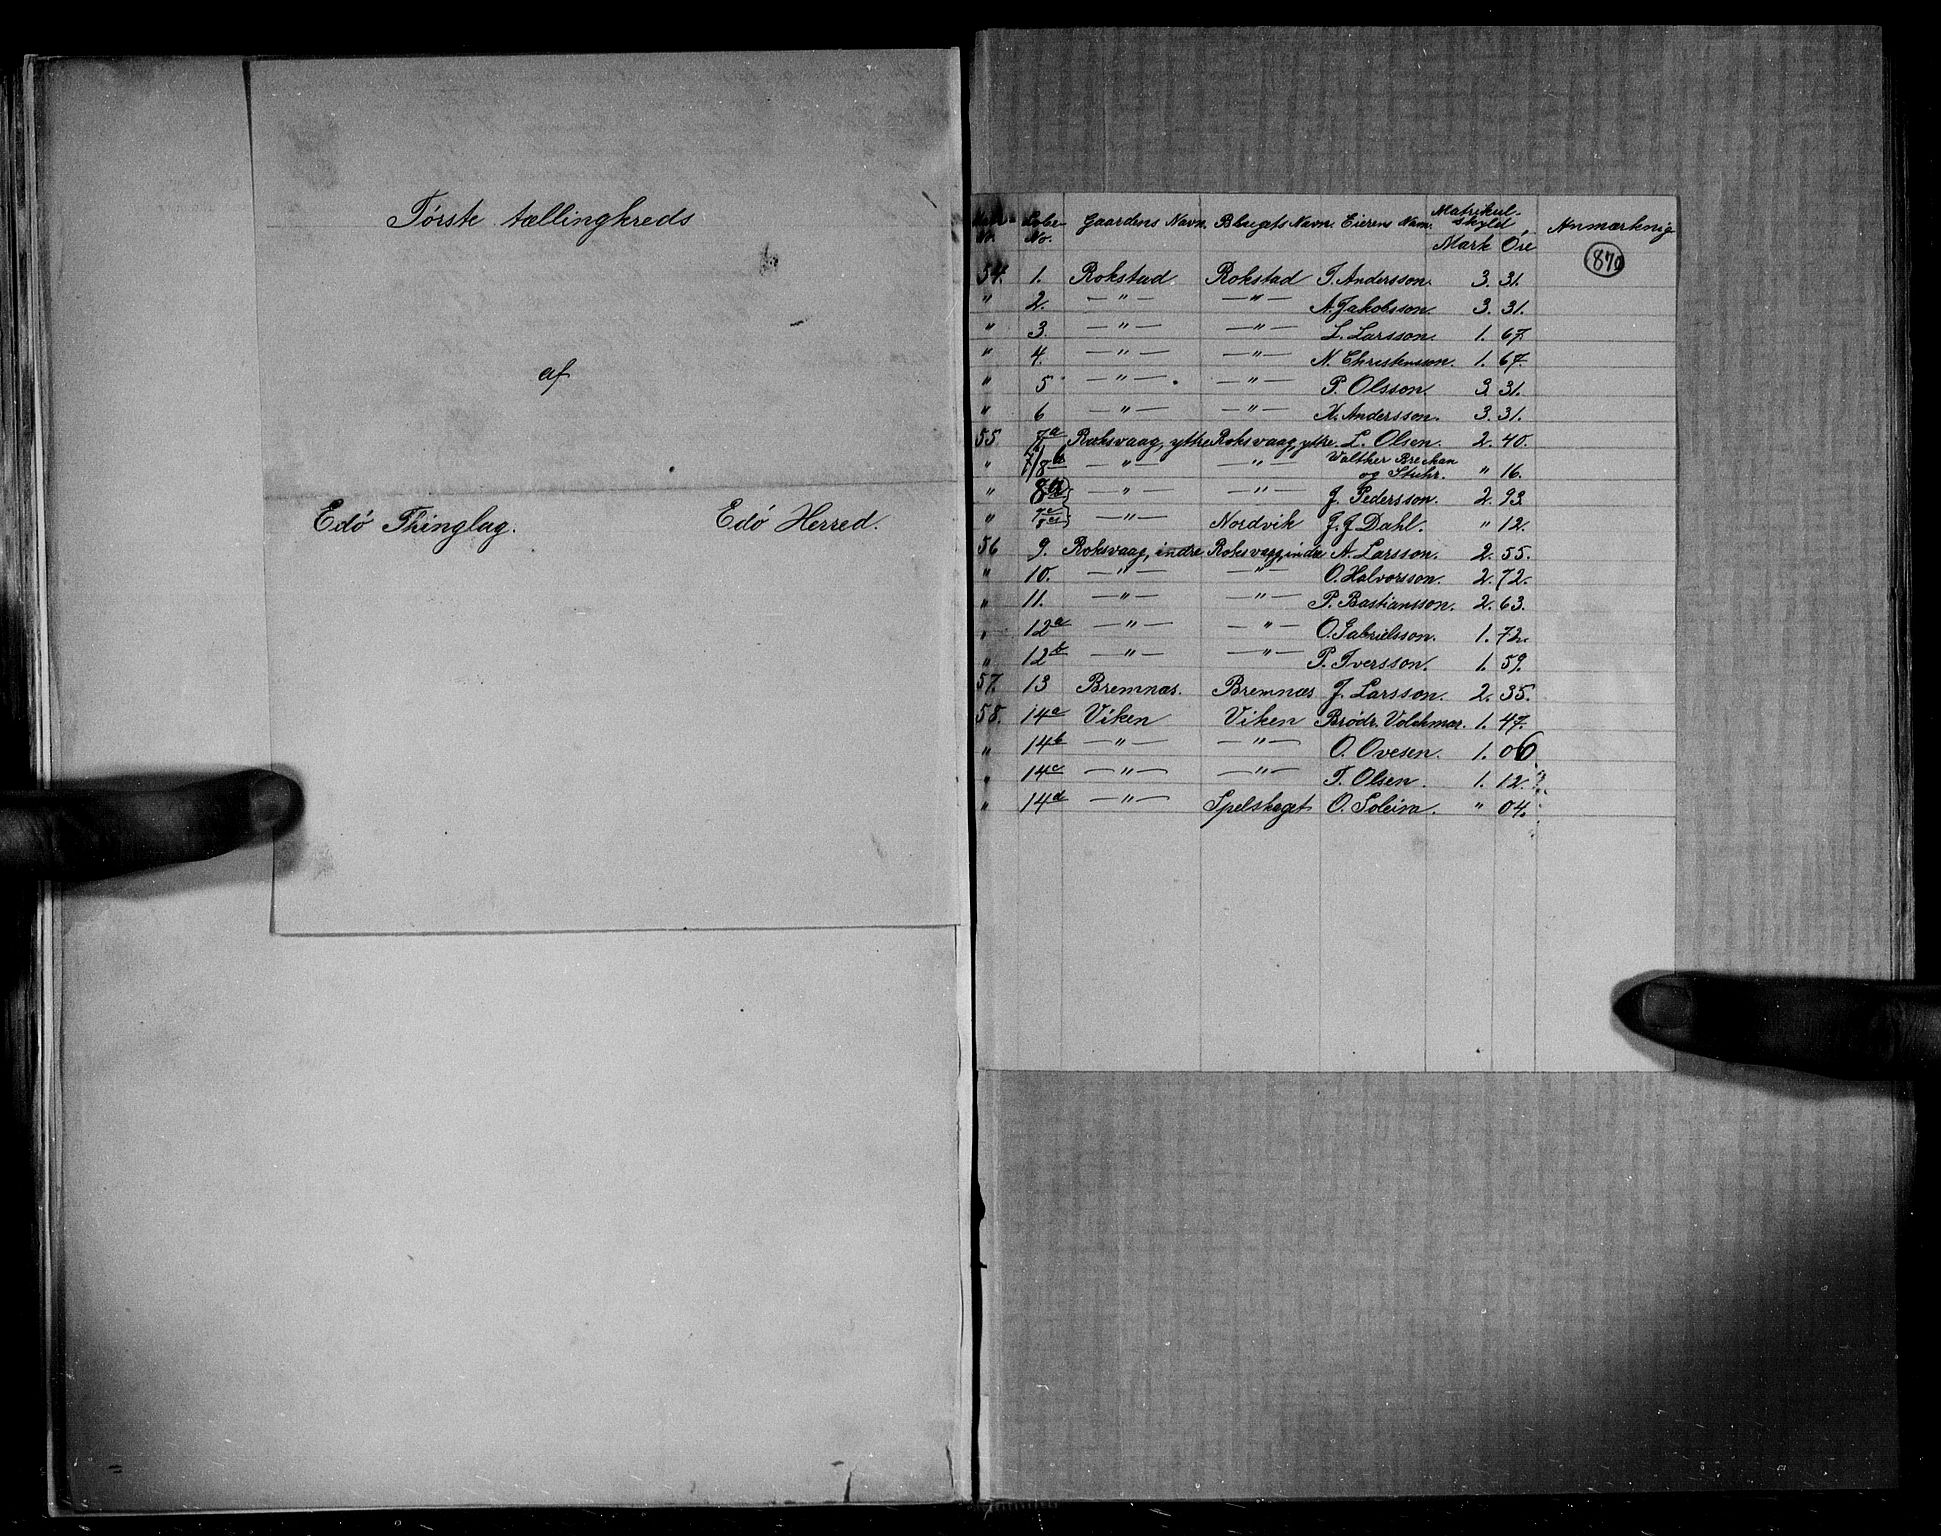 Første tællingkreds
af
Edö Thinglag. Edö Herred.
Matr.- No. Løbe- No. Gaardens Navn. Bbrugets Navn. Eierens Navn. Matrikul- skyld, Mark Øre Anmærknig
870
54. 1. Rokstad. Rokstad T. Andersson. 3. 31.
" 2. —"— —"— A. Jakobsson. 3. 31.
" 3. —"— —"— L. Larsson. 1. 67.
" 4. —"— —"— N. Christensson. 1. 67.
" 5 —"— —"— P. Olsson. 3. 31.
" 6 —"— —"— K. Andersson. 3. 31.
55. 7a Roksvaag, ytre Roksvaag, ytre. L. Olsen. 2. 40.
" 7/8b —"— —"— Walther Brechan
og Stuhr. " 16.
" 8a —"— —"— J. Pedersson. 2. 93.
" —"— Nordvik J. J. Dahl. " 12.
56 9. Roksvaag, indre Roksvaag, indre A. Larsson. 2. 55.
" 10. —"— —"— O. Halvorsson. 2. 72.
" 11. —"— —"— P. Bastiansson. 2. 63.
" 12a —"— —"— O. Gabrielsson. 1. 72.
" 12b —"— —"— P. Iversson. 1. 59.
57. 13 Bremnæs. Bremnæs J. Larsson. 2. 35.
58. 14a Viken Viken Brödr. Volckmar. 1. 47.
" 14b —"— —"— O. Ovesen. 1. 06
" 14c —"— —"— T. Olsen. 1. 12.
" 14d —"— Spelskaget O. Soleim. " 04.